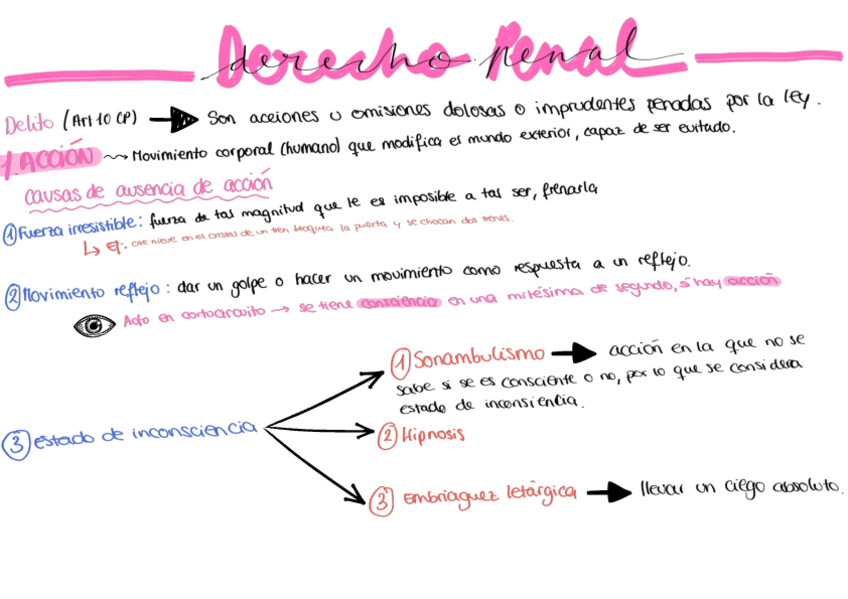 derecho Penal
Delito (Art 10 CP) → Son acciones u omisiones dolosas o imprudentes penadas por la ley.
1. ACCIÓN → Movimiento corporal (humano) que modifica el mundo exterior, capaz de ser evitado.
causas de ausencia de acción
① Fuerza irresistible: fuerza de tal magnitud que le es imposible a tal ser, frenarla
↳ Ej: cae nieve en el cristal de un tren bloquea la puerta y se chocan dos trenes.
② Movimiento reflejo: dar un golpe o hacer un movimiento como respuesta a un reflejo.
Acto en cortocircuito → se tiene consciencia en una milésima de segundo, sí hay acción
① Sonambulismo → acción en la que no se
sabe si se es consciente o no, por lo que se considera
estado de inconsiencia.
③ estado de inconsciencia
② Hipnosis
③ embriaguez letárgica → llevar un ciego absoluto.